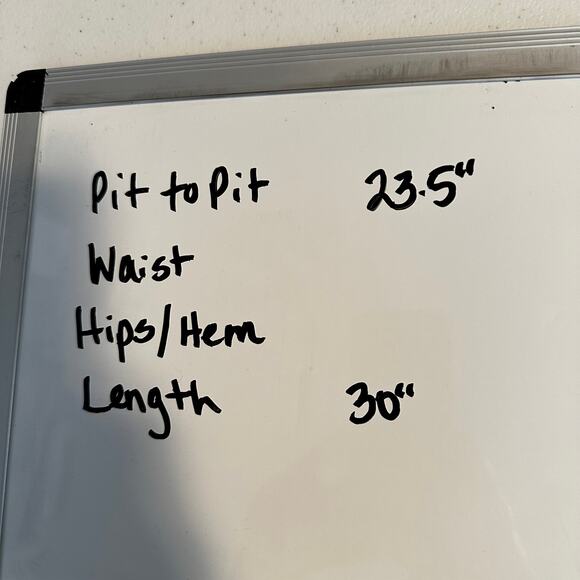 Pit to Pit 23.5"
Waist
Hips/Hem
Length 30"